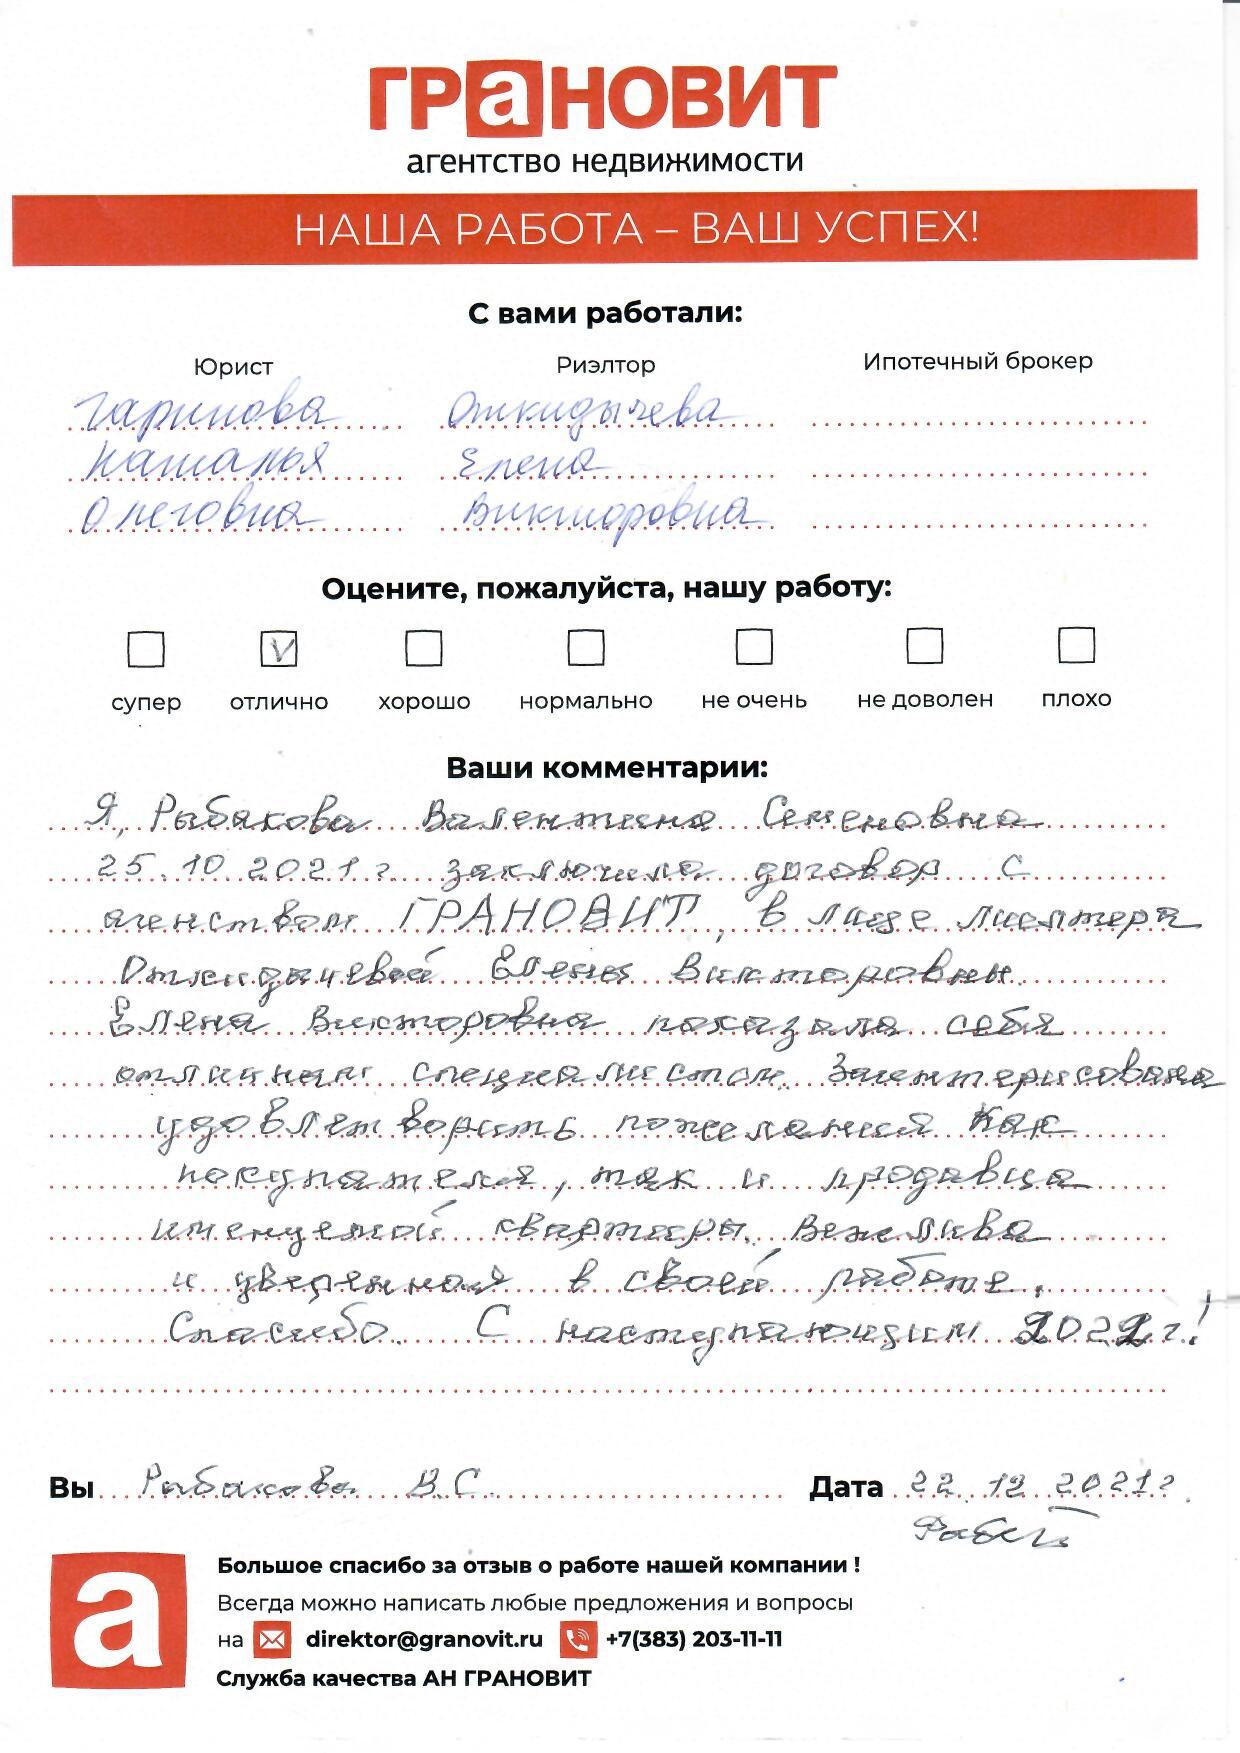 ГРаНОВИТ
агентство недвижимости
НАША РАБОТА – ВАШ УСПЕХ!
С вами работали:
Юрист Риэлтор Ипотечный брокер
Гаринова Откидычева
Наталья Елена
Олеговна Викторовна
Оцените, пожалуйста, нашу работу:
V
супер отлично хорошо нормально не очень не доволен плохо
Ваши комментарии:
Я, Рабакова Валентина Семеновна
25.10.2021г. заключила договор с
агенством ГРАНОВИТ, в лице лиэлтера
Откидачевой Елены Викторовны.
Елена Викторовна показала себя
отличным специалистом. Заинтерисована
удовлетворить пожелания как
покупателя, так и продавца
именуемой квартиры. Вежлива
и уверенная в своей работе.
Спасибо. С наступающим 2022г.!
Вы Рабакова В.С. Дата 22.12.2021г.
Большое спасибо за отзыв о работе нашей компании !
Всегда можно написать любые предложения и вопросы
на direktor@granovit.ru +7(383) 203-11-11
Служба качества АН ГРАНОВИТ
а